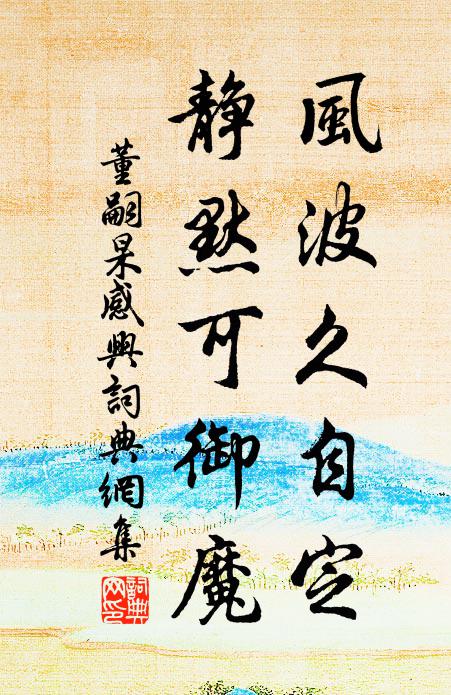 風波久自定
静默可御魔
董嗣杲感興詞典網集
詞典网印